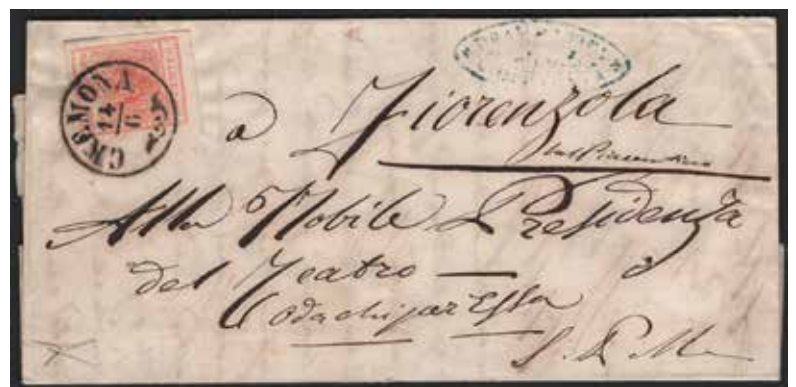 CREMONA
14
6
a Fiorenzola
Alla Nobile Presidenza
del Teatro
o da chi per Essa
S. P. M.